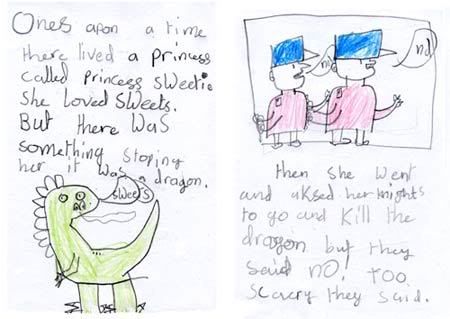 Ones apon a time
there lived a princess
called princess sweetie
she loved sweets.
But there was
something stoping
her it was a dragon.
sweets
no
no
then she went
and aksed her knights
to go and kill the
dragon but they
said no! too
scarcry they said.